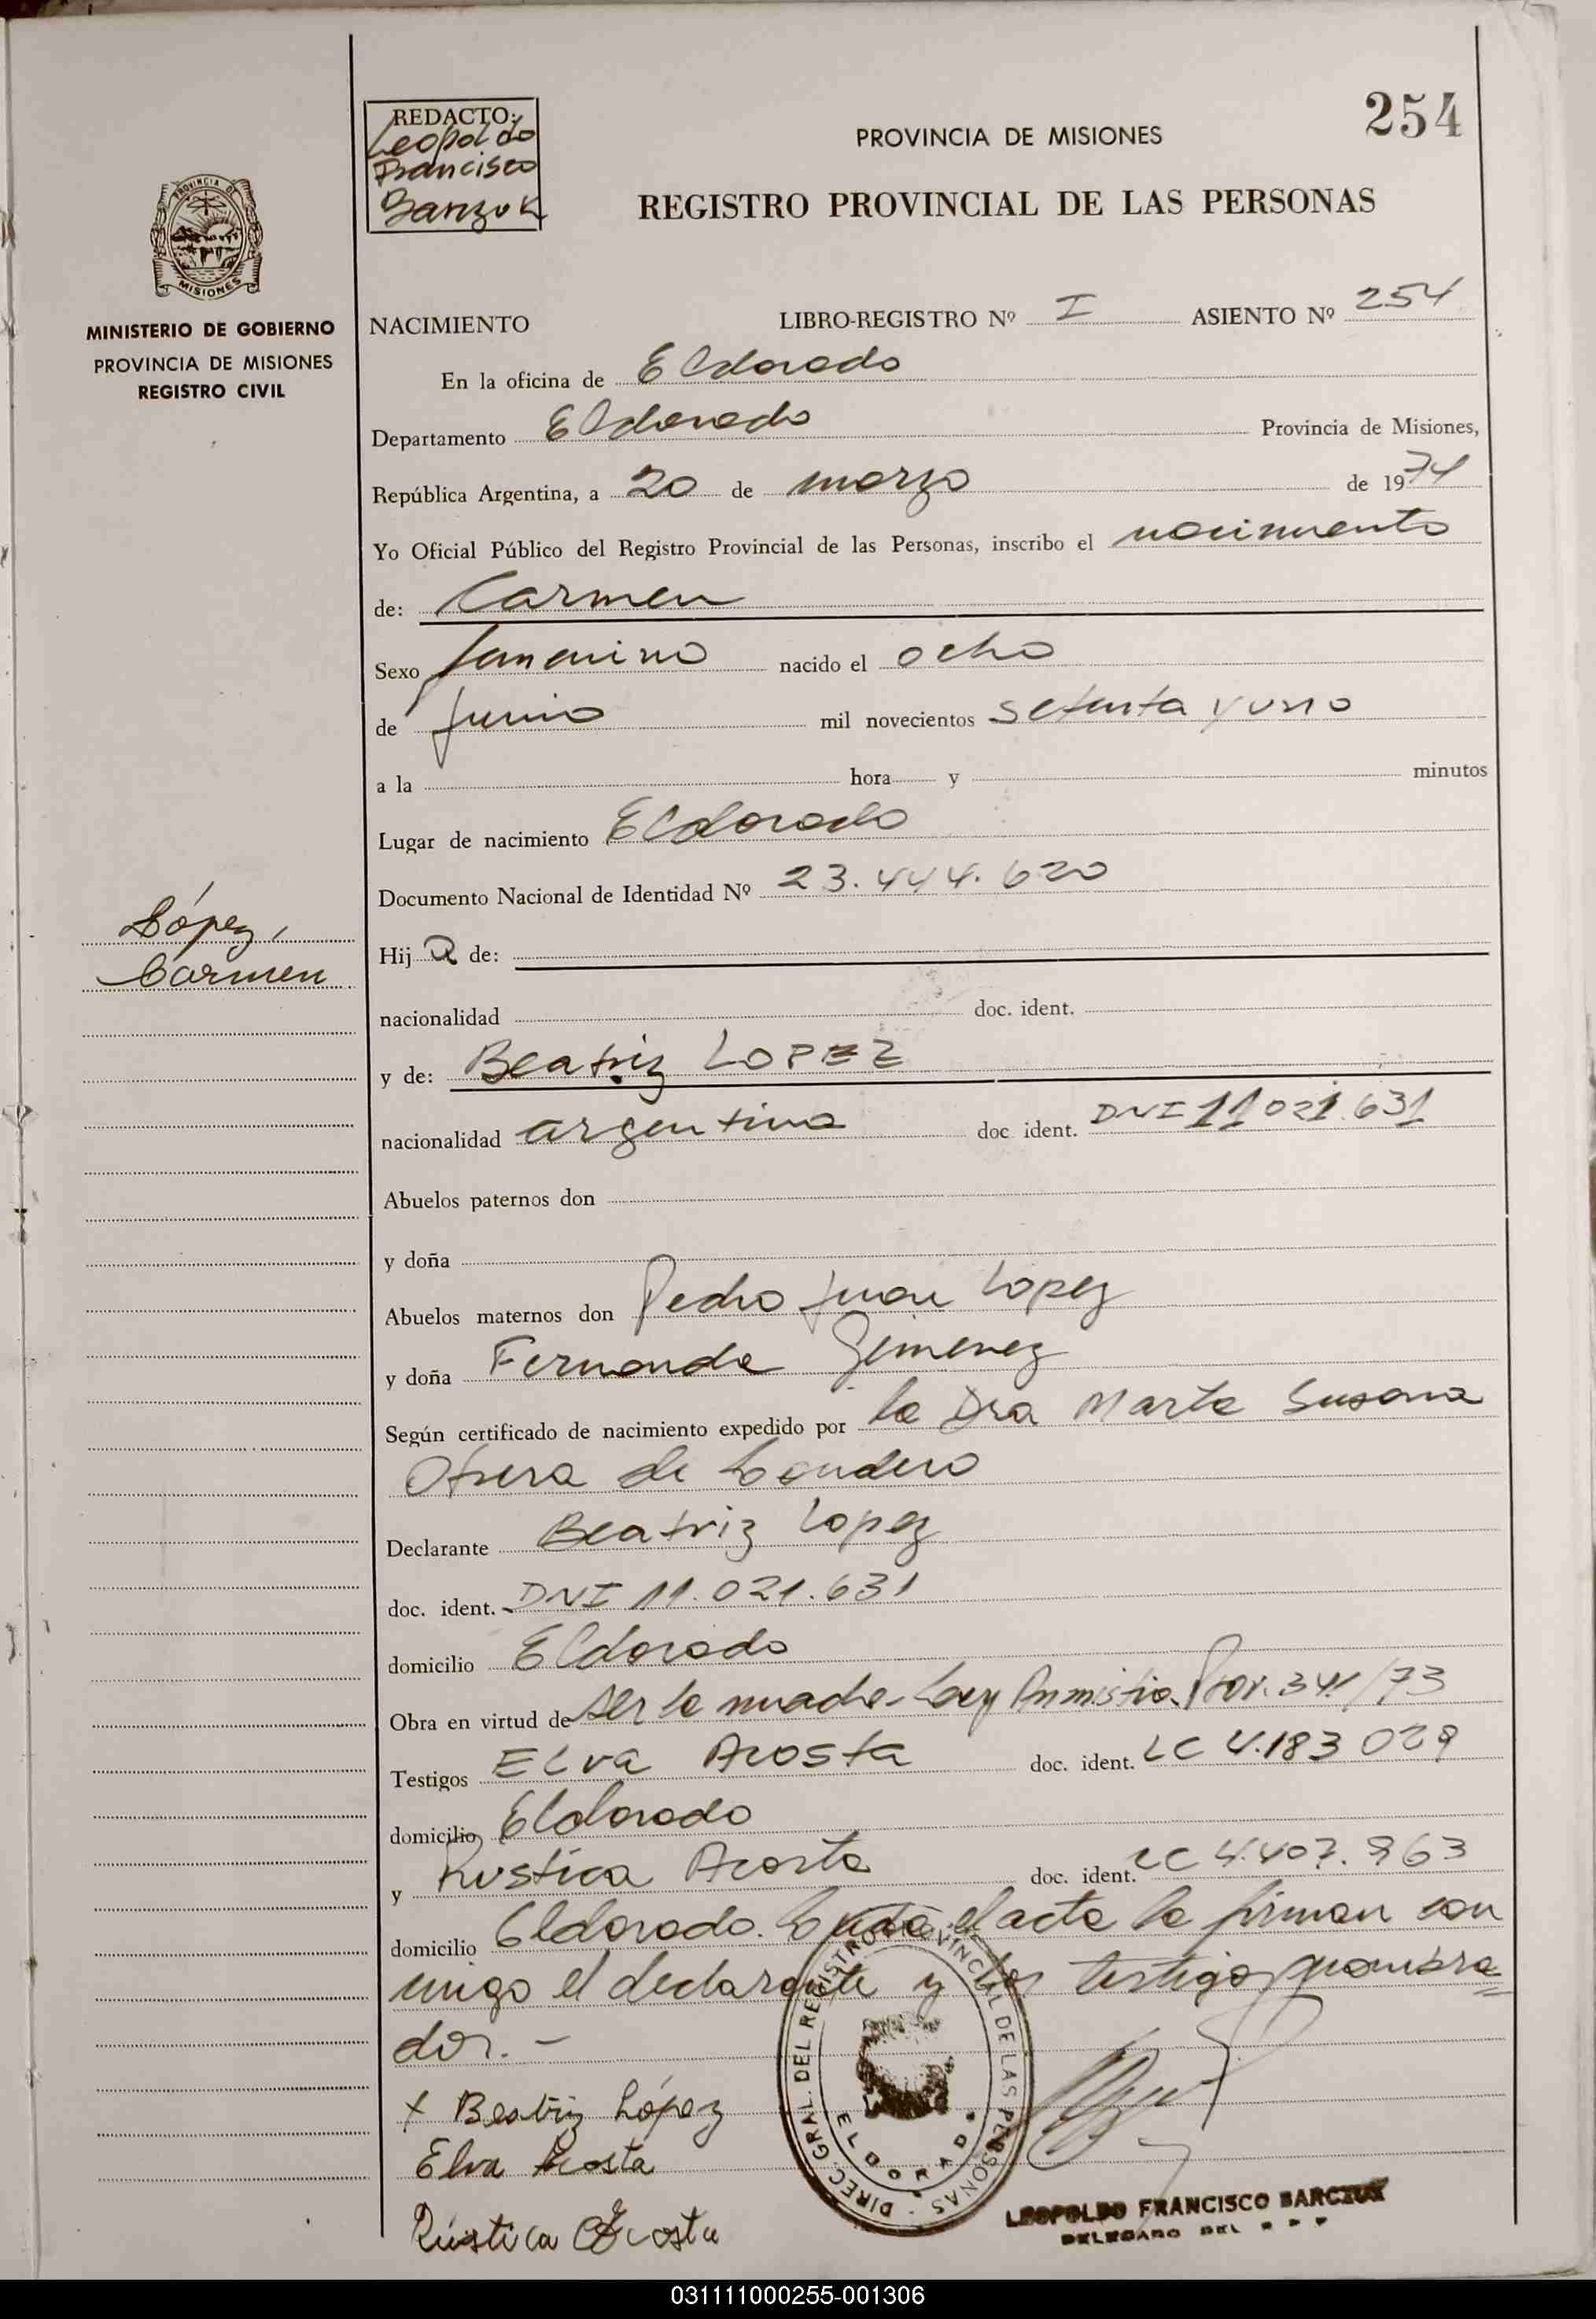 254
REDACTO:
Leopoldo
Francisco
Barczuk
PROVINCIA DE MISIONES
REGISTRO PROVINCIAL DE LAS PERSONAS
PROVINCIA DE
MISIONES
MINISTERIO DE GOBIERNO
PROVINCIA DE MISIONES
REGISTRO CIVIL
NACIMIENTO LIBRO-REGISTRO Nº I ASIENTO Nº 254
En la oficina de Eldorado
Departamento Eldorado Provincia de Misiones,
República Argentina, a 20 de marzo de 1974
Yo Oficial Público del Registro Provincial de las Personas, inscribo el nacimiento
de: Carmen
Sexo femenino nacido el ocho
de junio mil novecientos setenta y uno
a la hora y minutos
Lugar de nacimiento Eldorado
Documento Nacional de Identidad Nº 23.444.620
López,
Carmen
Hij a de:
nacionalidad doc. ident.
y de: Beatriz LOPEZ
nacionalidad argentina doc ident. DNI 11 021.631
Abuelos paternos don
y doña
Abuelos maternos don Pedro Juan Lopez
y doña Fernanda Gimenez
Según certificado de nacimiento expedido por la Dra Marta Susana
de
Declarante Beatriz Lopez
doc. ident. DNI 11.021.631
domicilio Eldorado
Obra en virtud de ser la madre - Ley Amnistia Prov. 341/73
Testigos ELva Acosta doc. ident. LC 4.183 029
domicilio Eldorado
y Rustica Acosta doc. ident. LC 4.407.963
domicilio Eldorado. el acta la firman con
migo el declarante y los testigos nombra=
dos. -
x Beatriz López
Elva Acosta
Rústica Acosta
DIREC. GRAL. DEL REGISTRO PROVINCIAL DE LAS PERSONAS
ELDORADO
LEOPOLDO FRANCISCO BARCZUK
DELEGADO DEL R P P
031111000255-001306